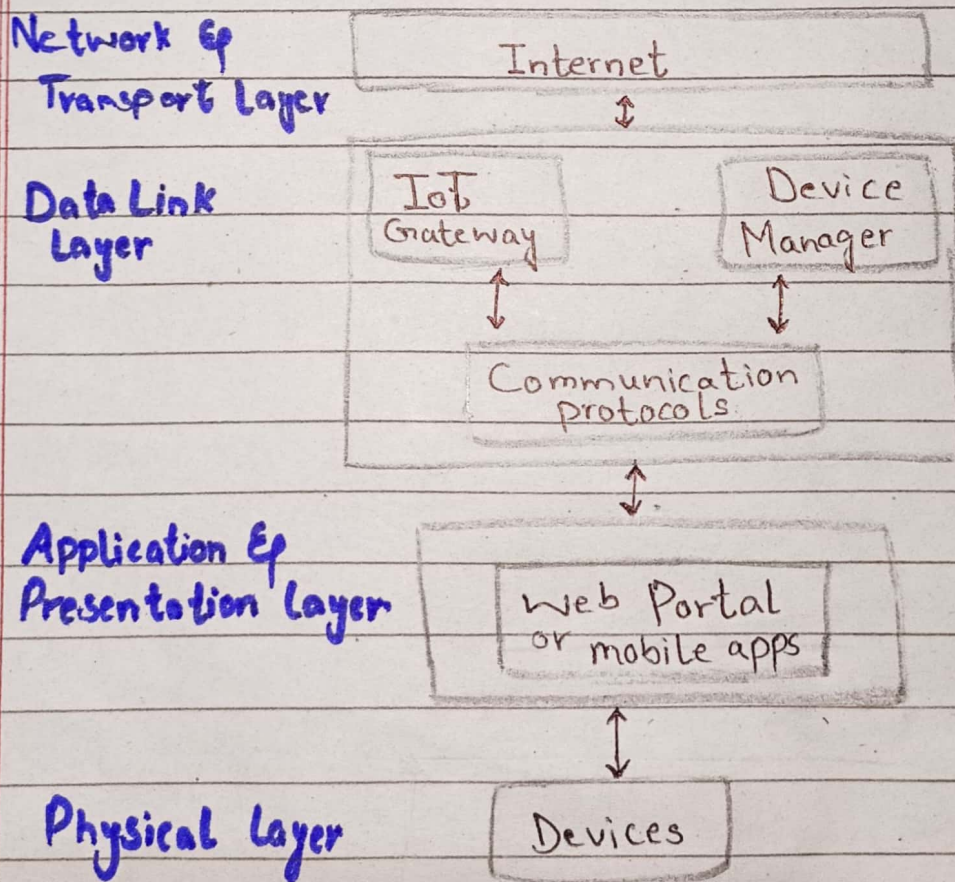 Network &
Transport Layer
Internet
Data Link
Layer
IoT
Gateway
Device
Manager
Communication
protocols.
Application &
Presentation Layer
Web Portal
or mobile apps
Physical Layer
Devices